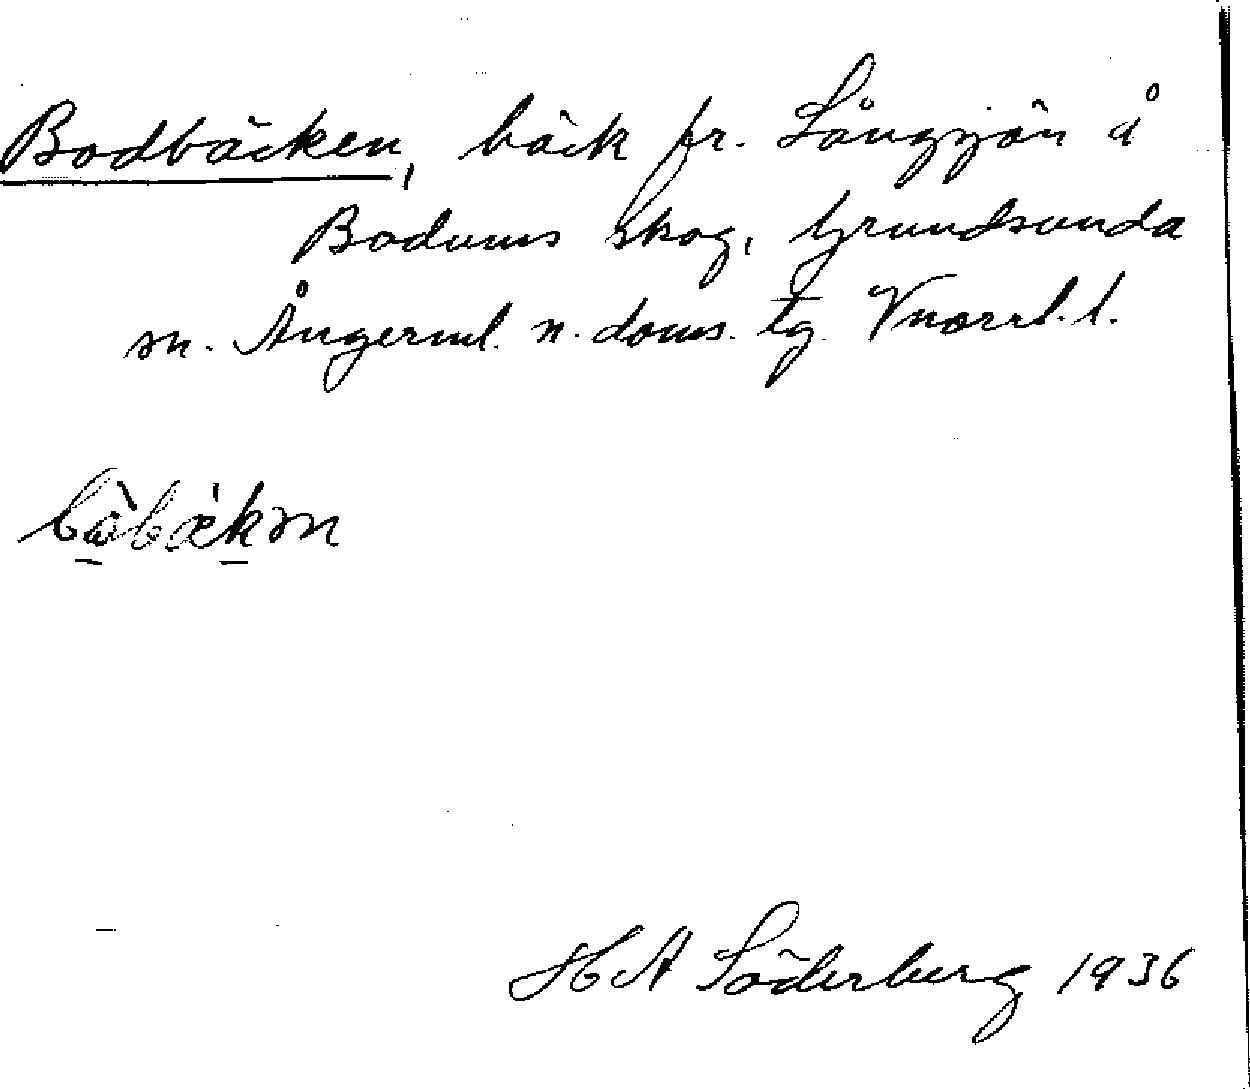 Bodbäcken, bäck fr. Långsjön å
Bodums skog, Grundsunda
sn. Ångerml. n. doms. tg. Vnorrl. l.
H A Söderberg 1936